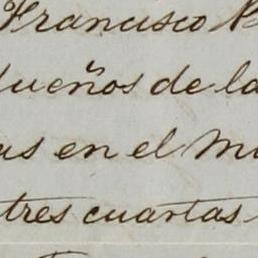 Francisco
dueños de la
en el
tres cuartas